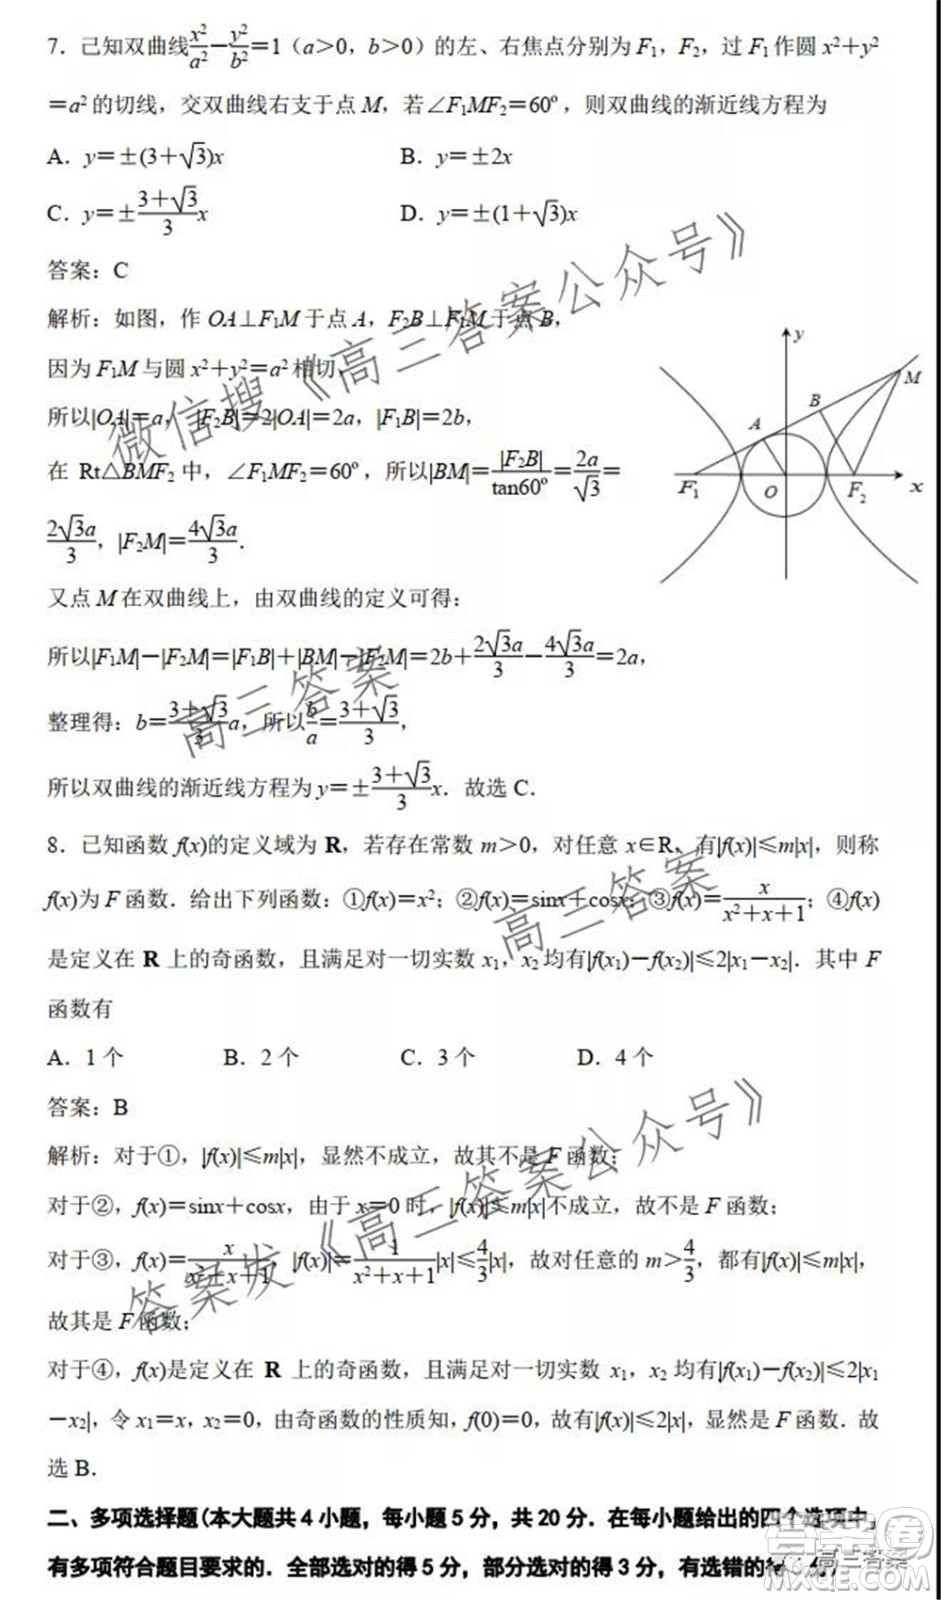 7．己知双曲线x²/a²－y²/b²＝1（a＞0，b＞0）的左、右焦点分别为 F₁，F₂，过 F₁作圆 x²＋y²
＝a²的切线，交双曲线右支于点 M，若∠F₁MF₂＝60º，则双曲线的渐近线方程为
A．y＝±(3＋√3)x B．y＝±2x
C．y＝±(3＋√3)/3 x D．y＝±(1＋√3)x
答案：C
解析：如图，作 OA⊥F₁M 于点 A，F₂B⊥F₁M 于点 B，
因为 F₁M 与圆 x²＋y²＝a² 相切，
所以|OA|＝a，|F₂B|＝2|OA|＝2a，|F₁B|＝2b，
在 Rt△BMF₂ 中，∠F₁MF₂＝60º，所以|BM|＝|F₂B|/tan60º＝2a/√3＝
2√3a/3，|F₂M|＝4√3a/3．
又点 M 在双曲线上，由双曲线的定义可得：
所以|F₁M|－|F₂M|＝|F₁B|＋|BM|－|F₂M|＝2b＋2√3a/3－4√3a/3＝2a，
整理得：b＝(3＋√3)/3 a，所以b/a＝(3＋√3)/3，
所以双曲线的渐近线方程为 y＝±(3＋√3)/3 x．故选 C．
y
M
B
A
F₁
O
F₂
x
8．已知函数 f(x)的定义域为 R，若存在常数 m＞0，对任意 x∈R，有|f(x)|≤m|x|，则称
f(x)为 F 函数．给出下列函数：①f(x)＝x²；②f(x)＝sinx＋cosx；③f(x)＝x/(x²＋x＋1)；④f(x)
是定义在 R 上的奇函数，且满足对一切实数 x₁，x₂ 均有|f(x₁)－f(x₂)|≤2|x₁－x₂|．其中 F
函数有
A．1 个 B．2 个 C．3 个 D．4 个
答案：B
解析：对于①，|f(x)|≤m|x|，显然不成立，故其不是 F 函数；
对于②，f(x)＝sinx＋cosx，由于 x＝0 时，|f(x)|≤m|x|不成立，故不是 F 函数；
对于③，f(x)＝x/(x²＋x＋1)，|f(x)|＝1/(x²＋x＋1)|x|≤4/3|x|，故对任意的 m＞4/3，都有|f(x)|≤m|x|，
故其是 F 函数；
对于④，f(x)是定义在 R 上的奇函数，且满足对一切实数 x₁，x₂ 均有|f(x₁)－f(x₂)|≤2|x₁
－x₂|，令 x₁＝x，x₂＝0，由奇函数的性质知，f(0)＝0，故有|f(x)|≤2|x|，显然是 F 函数．故
选 B．
二、多项选择题(本大题共 4 小题，每小题 5 分，共 20 分．在每小题给出的四个选项中，
有多项符合题目要求的．全部选对的得 5 分，部分选对的得 3 分，有选错的得
微信搜《高三答案公众号》
高三答案
高三答案
答案发《高三答案公众号》
高三答案
答案圈
MXQE.COM